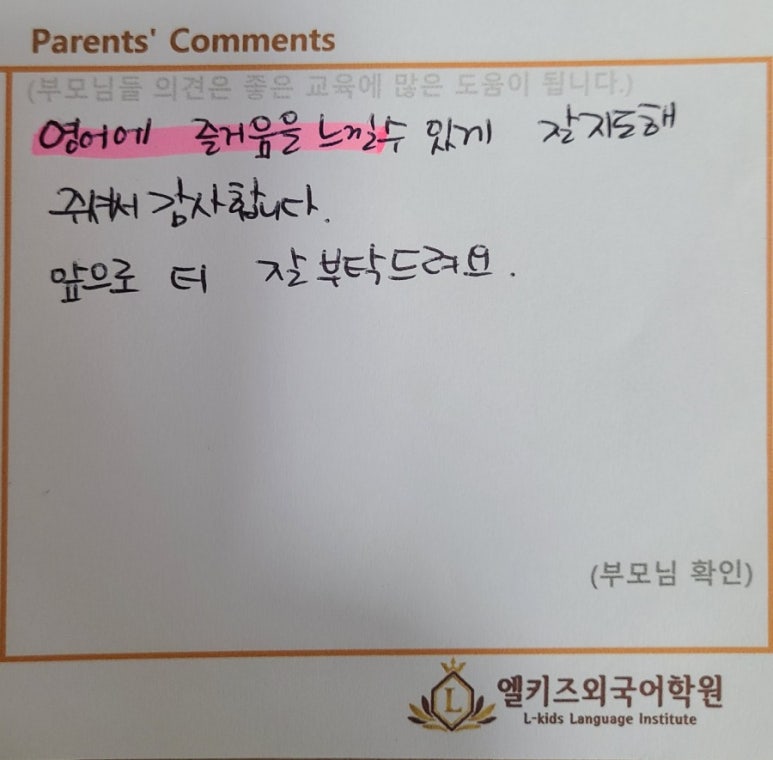 Parents' Comments
(부모님들 의견은 좋은 교육에 많은 도움이 됩니다.)
영어에 즐거움을 느낄수 있게 잘지도해
주셔서 감사합니다.
앞으로 더 잘 부탁드려요.
(부모님 확인)
L
엘키즈외국어학원
L-kids Language Institute